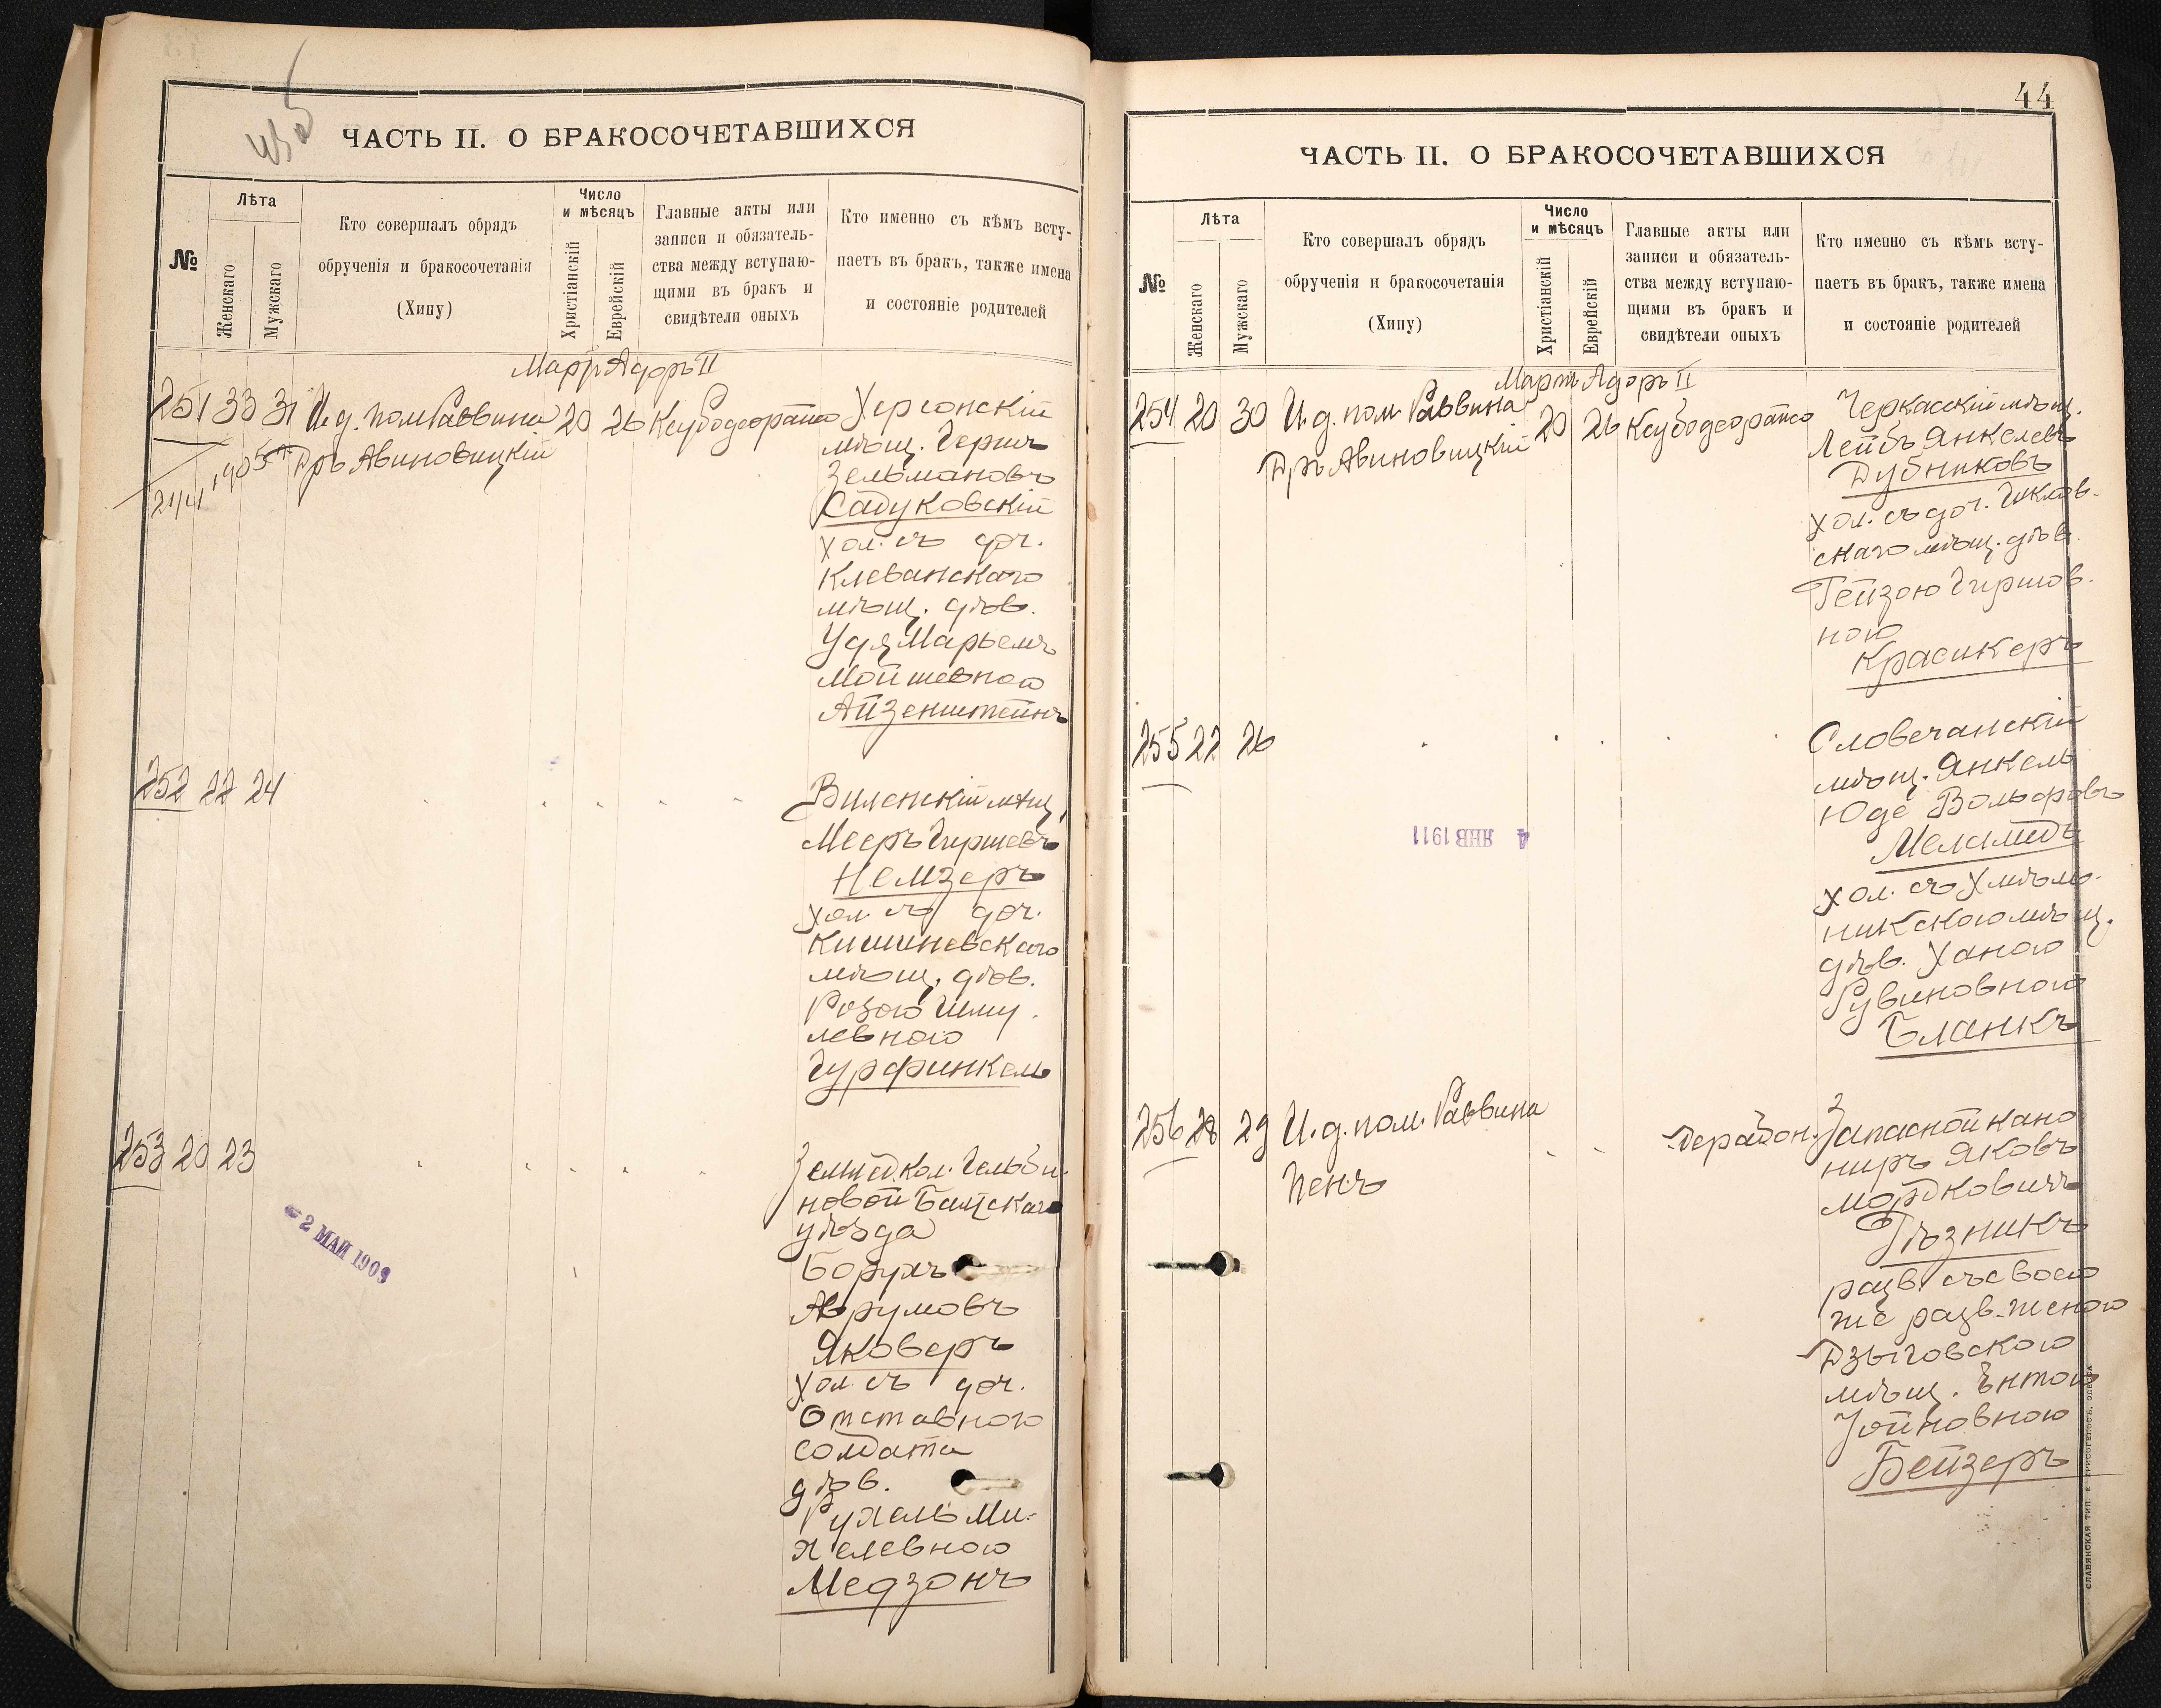 ЧАСТЬ II. О БРАКОСОЧЕТАВШИХСЯ
№
Лѣта
Женскаго
Мужскаго
Кто совершалъ обрядъ
обрученія и бракосочетанія
(Хипу)
Число
и мѣсяцъ
Христіанскій
Еврейскій
Главные акты или
записи и обязатель-
ства между вступаю-
щими въ бракъ и
свидѣтели оныхъ
Кто именно съ кѣмъ всту-
паетъ въ бракъ, также имена
и состояніе родителей
Мартъ Адоръ II
251 33 31 И.д. пом. Раввина 20 26 Ксубодеорайсо
1905
Дръ Авиновицкій
Херсонскій
мѣщ. Гершъ
Зельмановъ
Садуковскій
хол. съ доч.
Клеванскаго
мѣщ. дѣв.
Удя Марьемъ
Мойшевною
Айзенштейнъ
252 22 24
Виленскій мѣщ.
Мееръ Гиршевъ
Немзеръ
хол. съ доч.
Кишиневскаго
мѣщ. дѣв.
Розою Шму-
левною
Гурфинкель
253 20 23
Землед. кол. Гельби-
новой Балтскаго
уѣзда
Борухъ
Аврумовъ
Яковеръ
хол. съ доч.
Отставного
солдата
дѣв.
Рухель Ми-
хелевною
Медзонъ
2 МАЙ 1909
44
ЧАСТЬ II. О БРАКОСОЧЕТАВШИХСЯ
№
Лѣта
Женскаго
Мужскаго
Кто совершалъ обрядъ
обрученія и бракосочетанія
(Хипу)
Число
и мѣсяцъ
Христіанскій
Еврейскій
Главные акты или
записи и обязатель-
ства между вступаю-
щими въ бракъ и
свидѣтели оныхъ
Кто именно съ кѣмъ всту-
паетъ въ бракъ, также имена
и состояніе родителей
Мартъ Адоръ II
254 20 30 И.д. пом. Раввина 20 26 Ксубодеорайсо
Дръ Авиновицкій
Черкасскій мѣщ.
Лейбъ Янкелевъ
Дубниковъ
хол. съ доч. Шклов-
скаго мѣщ. дѣв.
Гейзою Гиршов-
ною
Красикеръ
255 22 26
Словечанскій
мѣщ. Янкель
Юде Вольфовъ
Меламедъ
хол. съ Хмѣль-
никскою мѣщ.
дѣв. Ханою
Рувиновною
Бланкъ
4 ЯНВ 1911
256 28 29 И.д. пом. Раввина
Пенъ
Дерабон.
Запасной кано
ниръ Яковъ
Мордковичъ
Рѣзникъ
разв. съ своею
же разв. женою
Дзыговскою
мѣщ. Энтою
Бейзеръ
СЛАВЯНСКАЯ ТИП. Е. ХРИСОГЕЛОСЪ, ОДЕССА